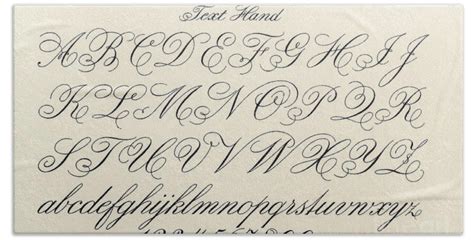 Text Hand
A B C D E F G H I J
K L M N O P Q R
S T U V W X Y Z
abcdefghijklmnopqrstuvwxyz